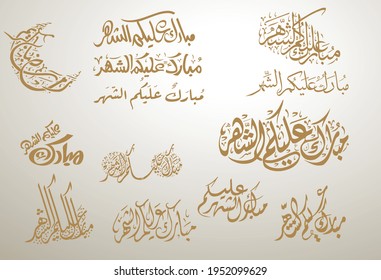 مبارك عليكم الشهر
مبارك عليكم الشهر
مبارك عليكم الشهر
مبارك عليكم الشهر
مبارك عليكم الشهر
مبارك عليكم الشهر
مبارك عليكم الشهر
مبارك عليكم الشهر
مبارك عليكم الشهر
مبارك عليكم الشهر
shutterstock
IMAGE ID: 1952099629
www.shutterstock.com